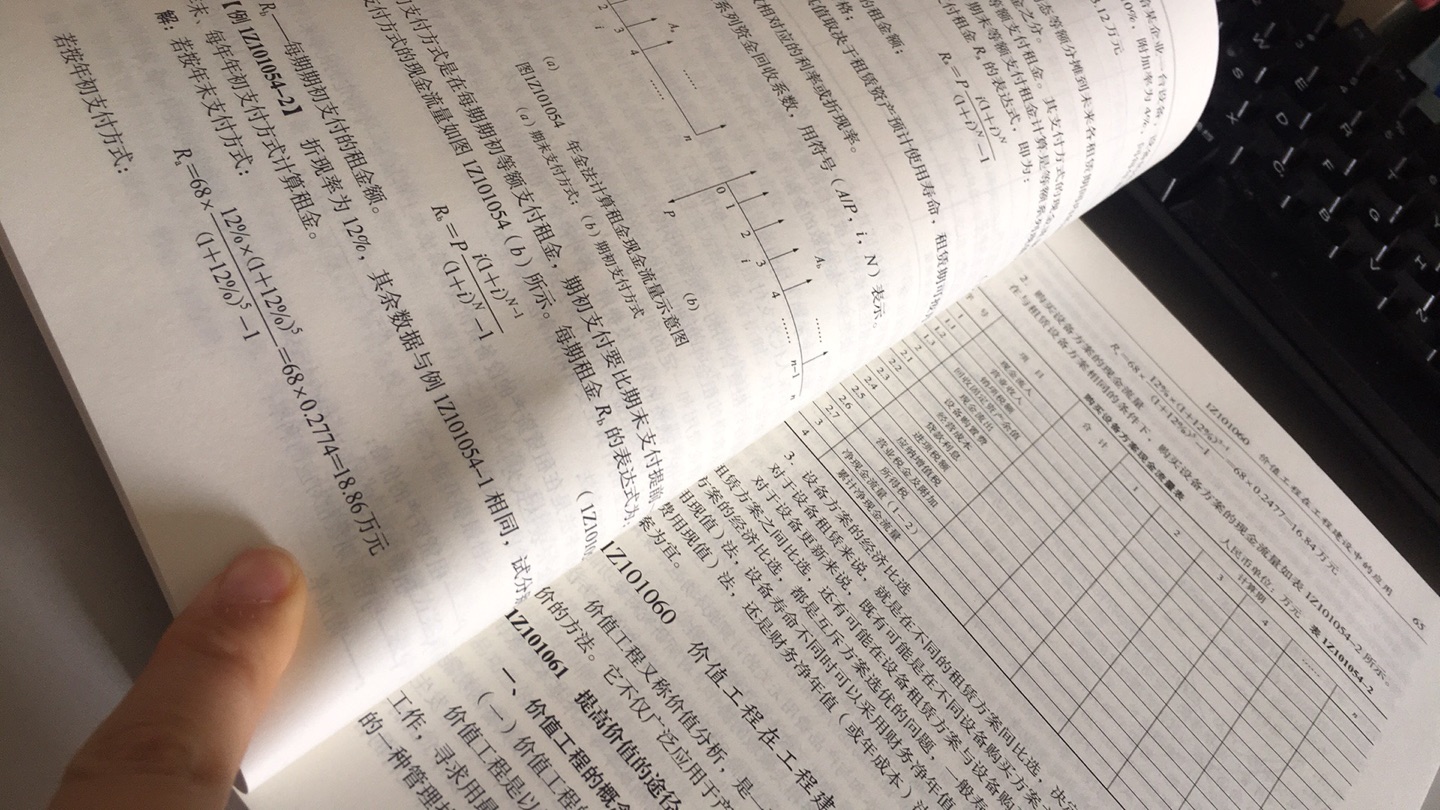 10%，附加率为4%
金之分。其支付方式的
期末等额支付租金计算是等额系
付租金 Ra 的表达式，即为：
Ra=P i(1+i)^N/((1+i)^N−1)
的租金额；
格；
值取决于租赁资产预计使用寿命，租赁期
相对应的利率或折现率。
系列资金回收系数，用符号（A/P，i，N）表示。
Aa
2 3 4 …… n
i
(a)
Ab
0 1 2 3 4 …… n−1 n
i
P
(b)
图1Z101054 年金法计算租金现金流量示意图
(a) 期末支付方式；(b) 期初支付方式
支付方式是在每期期初等额支付租金，期初支付要比期末支付提前
支付方式的现金流量如图 1Z101054（b）所示。每期租金 Rb 的表达式为
Rb=P i(1+i)^(N−1)/((1+i)^N−1)
(1Z101
Rb——每期期初支付的租金额。
【例 1Z101054-2】 折现率为 12%，其余数据与例 1Z101054-1 相同，试分
末、每年年初支付方式计算租金。
解：若按年末支付方式：
Ra=68×12%×(1+12%)^5/((1+12%)^5−1)=68×0.2774=18.86万元
若按年初支付方式：
1Z101060 价值工程在工程建设中的应用 65
Rb=68×12%×(1+12%)^(5−1)/((1+12%)^5−1)=68×0.2477=16.84万元
2. 购买设备方案的现金流量
在与租赁设备方案相同的条件下，购买设备方案的现金流量如表 1Z101054-2 所示。
购买设备方案现金流量表 表 1Z101054-2
人民币单位：万元
序号 项 目 合 计 计算期
1 2 3 4 …… n
1 现金流入
1.1 营业收入
1.2 销项税额
1.3 回收固定资产余值
2 现金流出
2.1 设备购置费
2.2 经营成本
2.3 贷款利息
2.4 进项税额
2.5 应纳增值税
2.6 营业税金及附加
2.7 所得税
3 净现金流量（1−2）
4 累计净现金流量
3. 设备方案的经济比选
对于设备租赁来说，就是在不同的租赁方案间比选，决定
对于设备更新来说，既有可能是在不同设备购买方案
租赁方案之间比选，还有可能在设备租赁方案与设备购
方案的经济比选，都是互斥方案选优的问题，一般寿
用现值）法，设备寿命不同时可以采用财务净年值（或年成本）法
费用现值）法，还是财务净年值
案为宜。
1Z101060 价值工程在工程建
价值工程又称价值分析，是一
价的方法。它不仅广泛应用于产
1Z101061 提高价值的途径
一、价值工程的概念
（一）价值工程的
价值工程是以
工作，寻求用最
的一种管理